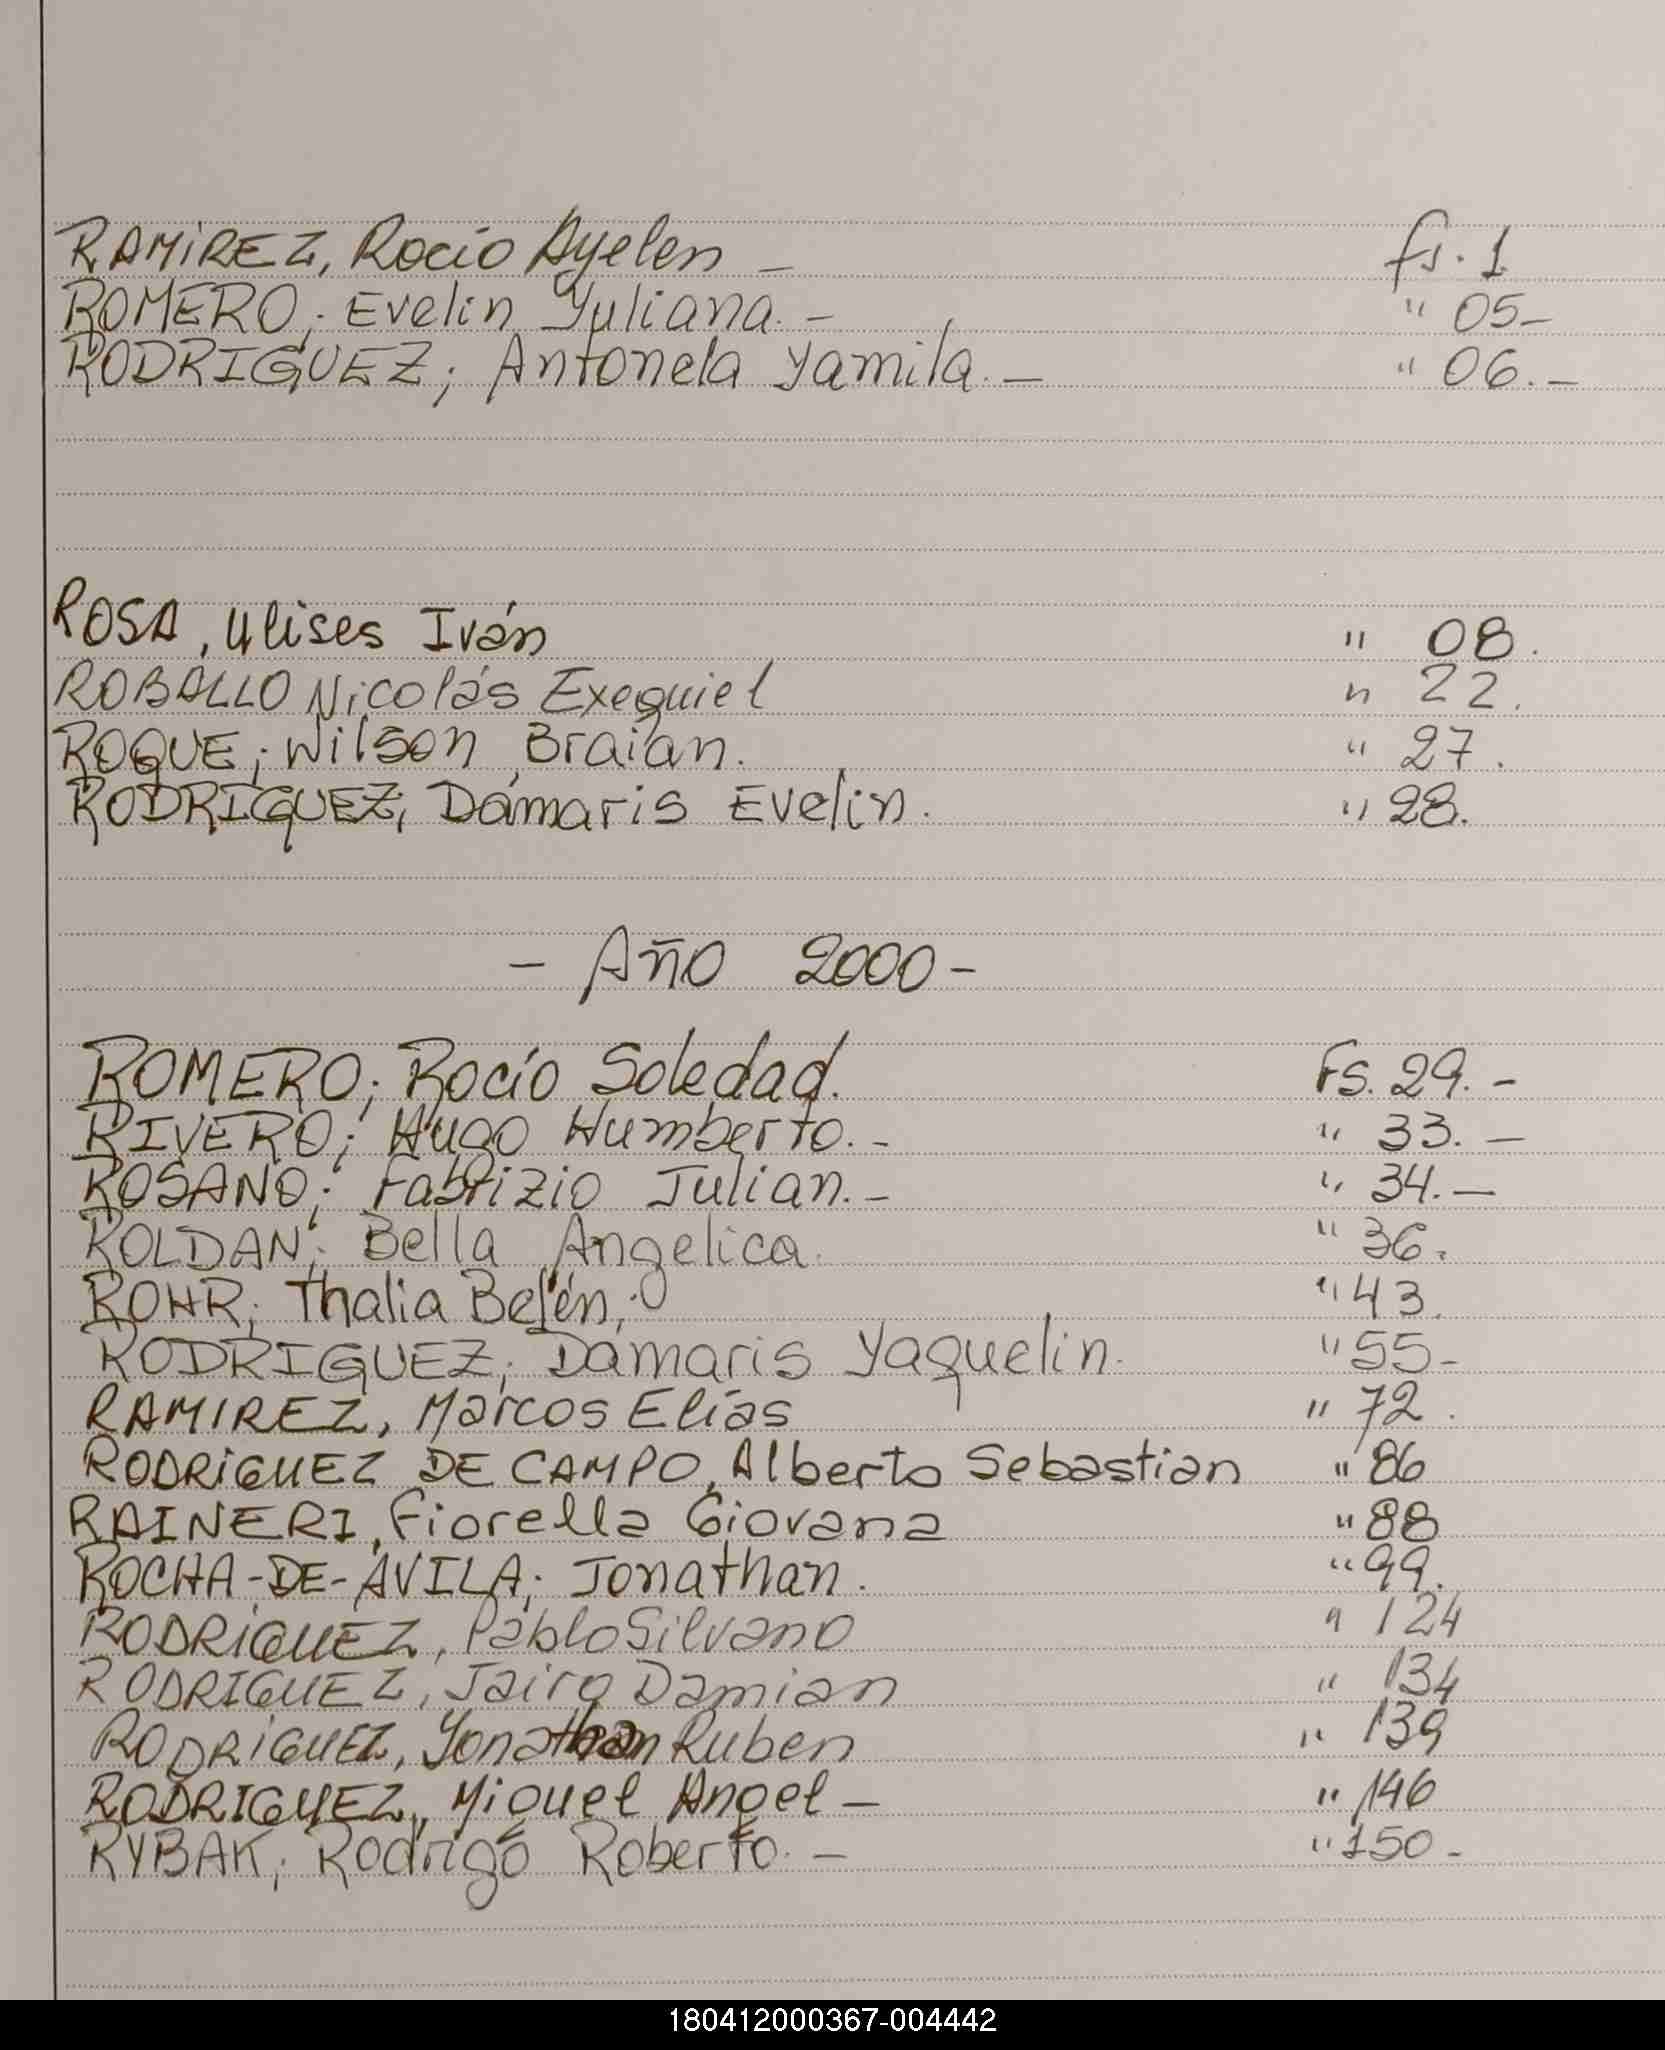 RAMIREZ, Rocio Ayelen - fs. 1
ROMERO; Evelin Yuliana. - " 05-
RODRIGUEZ; Antonela Yamila. - " 06.-
ROSA, Ulises Iván " 08.
ROBALLO Nicolás Exequiel " 22.
ROQUE; Wilson Braian. " 27.
RODRIGUEZ; Dámaris Evelin. " 28.
- Año 2000 -
ROMERO; Rocío Soledad. Fs. 29.-
RIVERO; Hugo Humberto. - " 33. -
ROSANO; Fabrizio Julian. - " 34. -
ROLDAN; Bella Angelica. " 36.
ROHR; Thalia Belén; " 43.
RODRIGUEZ; Damaris Yaquelin. " 55-
RAMIREZ, Marcos Elías " 72.
RODRIGUEZ DE CAMPO, Alberto Sebastian " 86
RAINERI, Fiorella Giovana " 88
ROCHA-DE-ÁVILA; Jonathan. " 99.
RODRIGUEZ, Pablo Silvano " 124
RODRIGUEZ, Jairo Damian " 134
RODRIGUEZ, Yonathan Ruben " 139
RODRIGUEZ, Miguel Angel - " 146
RYBAK; Rodrigo Roberto. - " 150 -
180412000367-004442